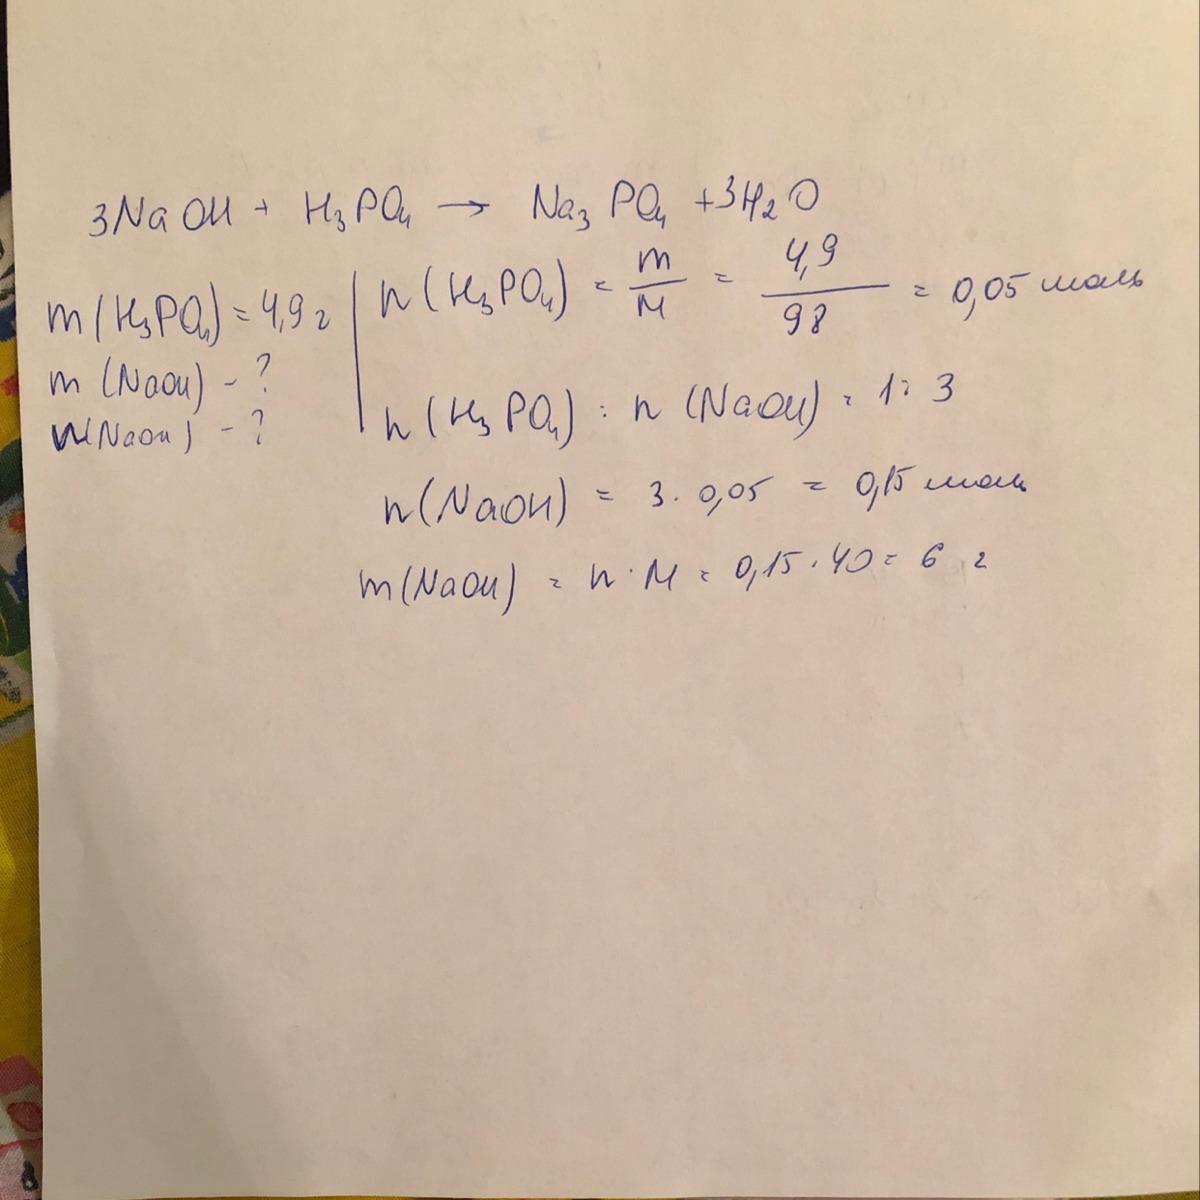 3NaOH + H₃PO₄ → Na₃PO₄ + 3H₂O
m(H₃PO₄) = 4,9 г
m(NaOH) - ?
n(NaOH) - ?
n(H₃PO₄) = m/M = 4,9/98 = 0,05 моль
n(H₃PO₄) : n(NaOH) = 1:3
n(NaOH) = 3 · 0,05 = 0,15 моль
m(NaOH) = n · M = 0,15 · 40 = 6 г